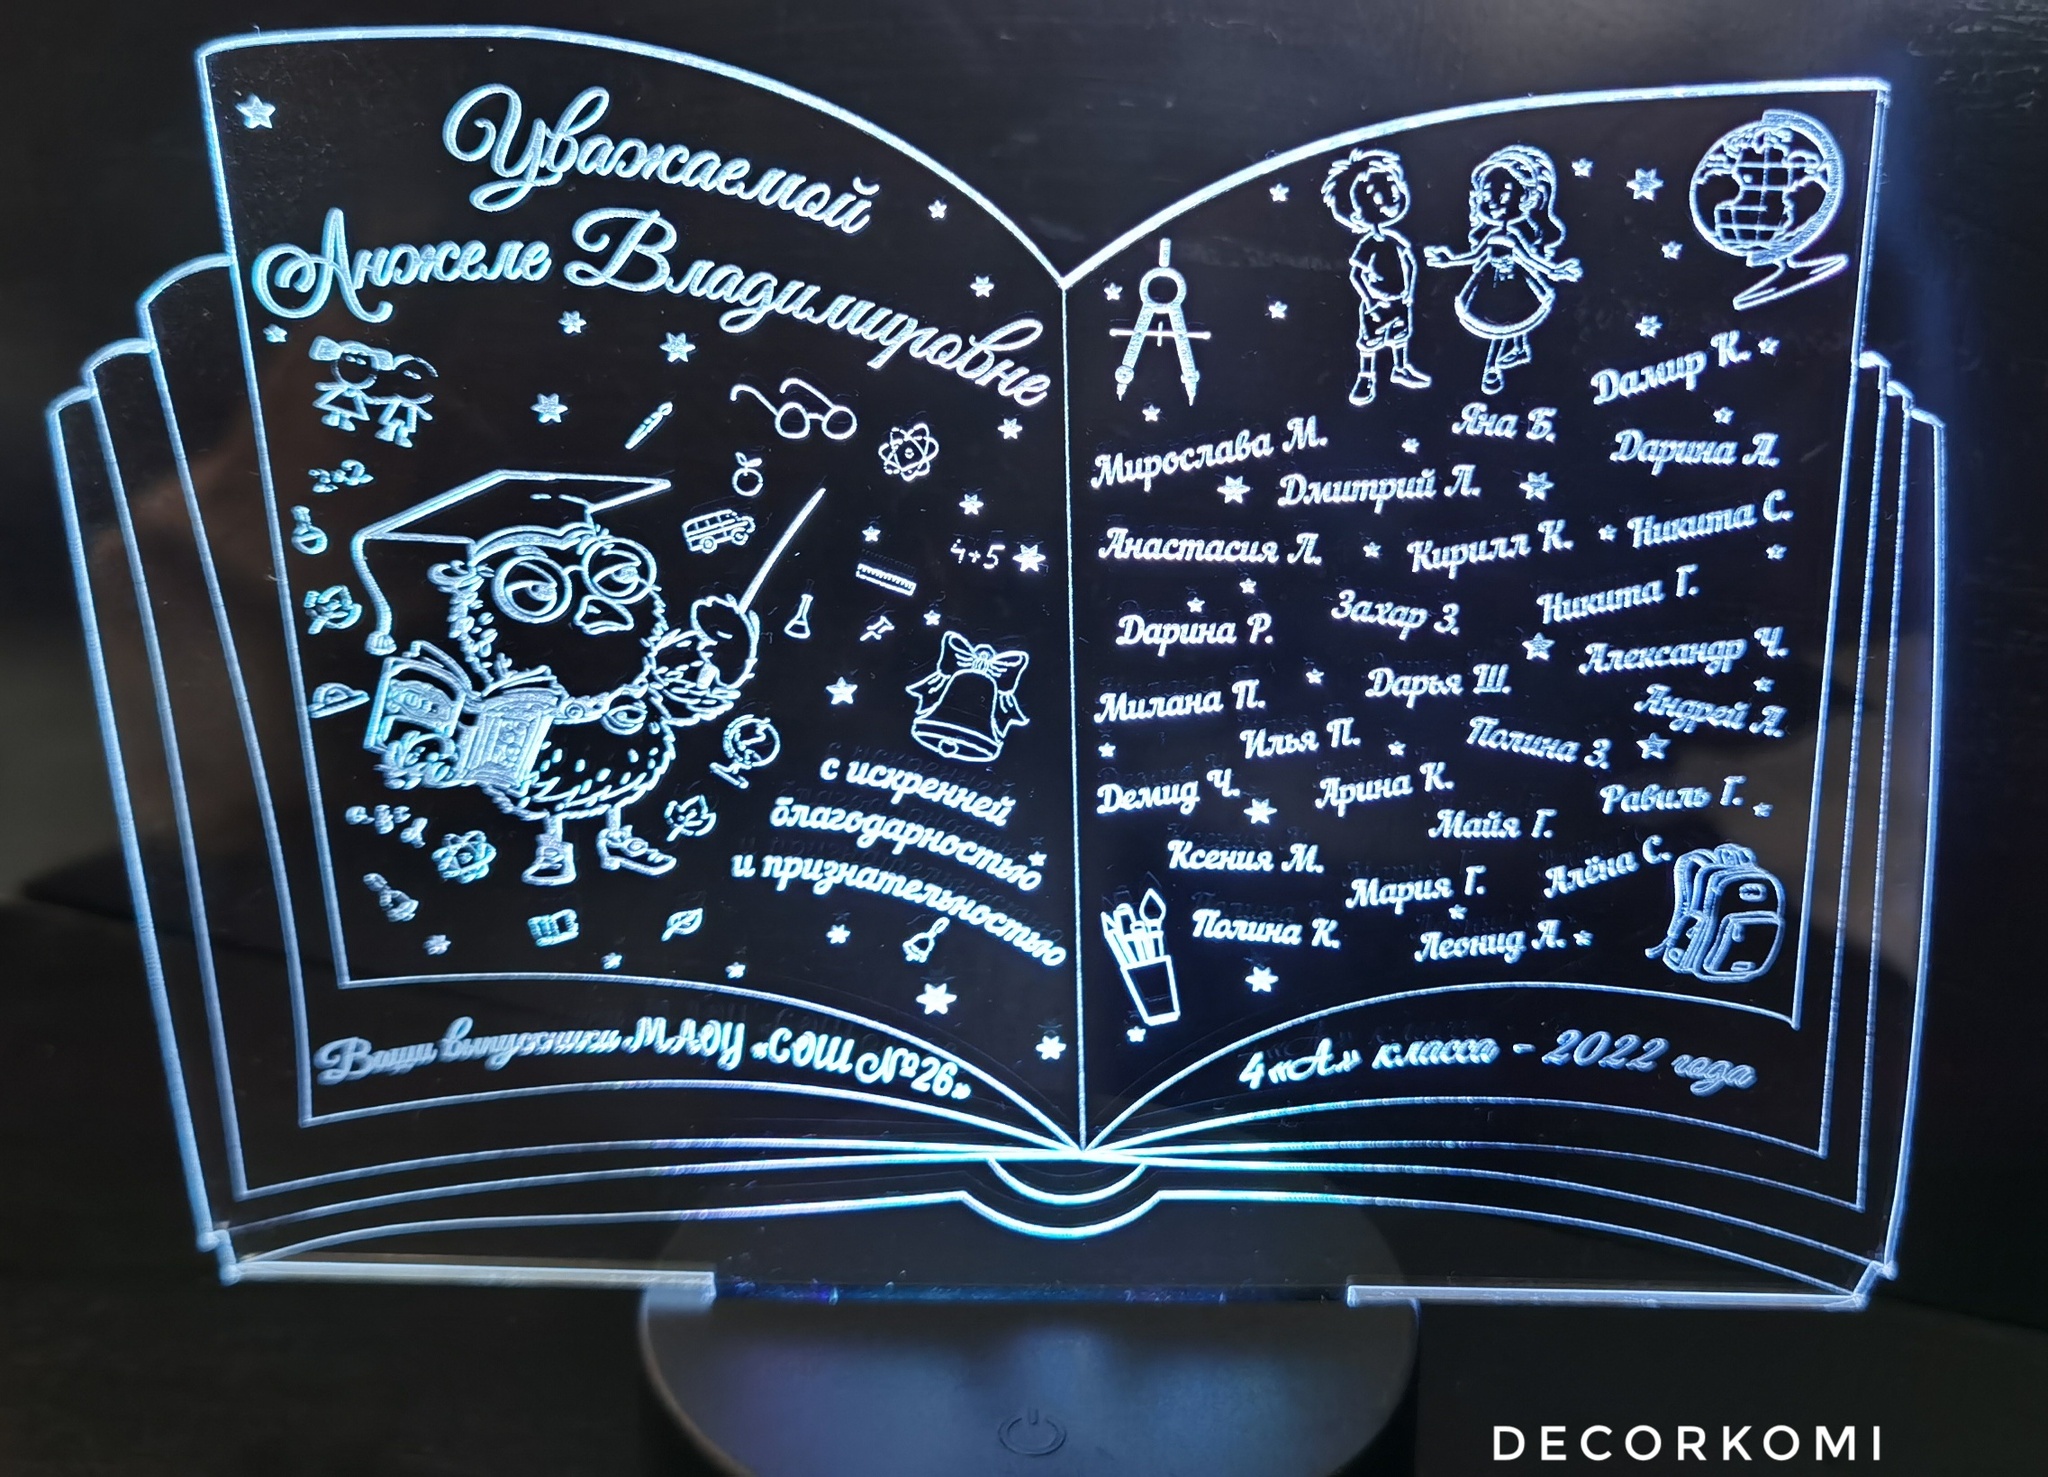 Уважаемой
Анжеле Владимировне
4+5
с искренней
благодарностью
и признательностью
Ваши выпускники МАОУ «СОШ №26»
Дамир К.
Мирослава М.
Яна Б.
Дарина А.
Дмитрий Л.
Анастасия Л.
Кирилл К.
Никита С.
Дарина Р.
Захар З.
Никита Г.
Александр Ч.
Милана П.
Дарья Ш.
Андрей А.
Илья П.
Полина З.
Демид Ч.
Арина К.
Равиль Г.
Майя Г.
Ксения М.
Мария Г.
Алёна С.
Полина К.
Леонид А.
4 «А» класса - 2022 года
DECORKOMI